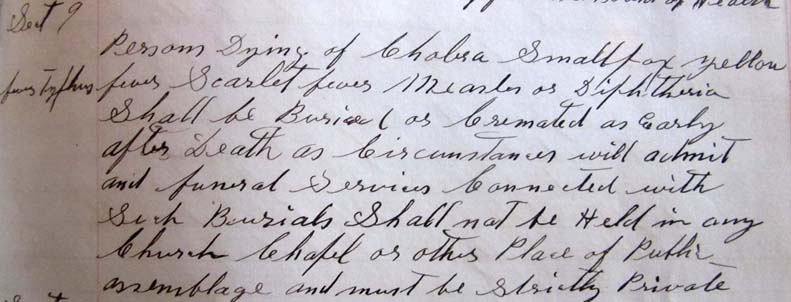 Board of Health
Sect 9
Persons Dying of Cholera Smallpox yellow
fever typhus fever Scarlet fever Measles or Diphtheria
Shall be Buried or Cremated as Early
after Death as Circumstances will admit
and funeral Services Connected with
Such Bourials Shall not be Held in any
Church Chapel or other Place of Public
assemblage and must be Strictly Private